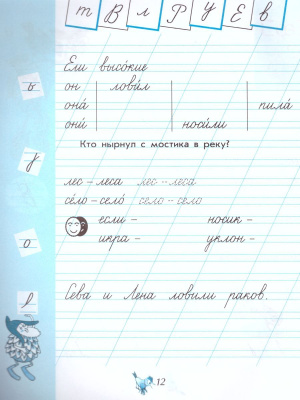 т В л Р У Е в
Ели высо́кие
ь
он лови́л
она́ пила́
они́ носи́ли
Кто нырнул с мостика в реку?
у
лес – леса лес – леса́
се́ло – село́ село – село
если – носик –
о
икра – уклон –
Сева и Лена ловили раков.
12